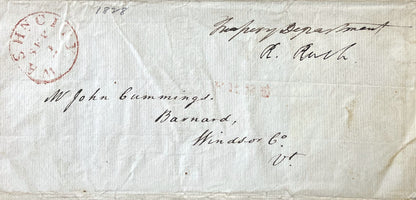 1828
WASHN CITY
SEP
1
Treasury Department
R. Rush.
FREE
Mr John Cummings.
Barnard,
Windsor Co.
Vt.